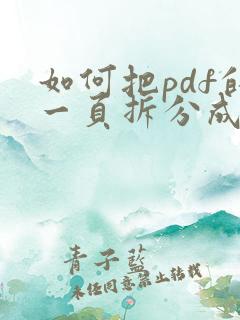 如何把pdf
一页拆分成
青子蓝
未经同意禁止转载